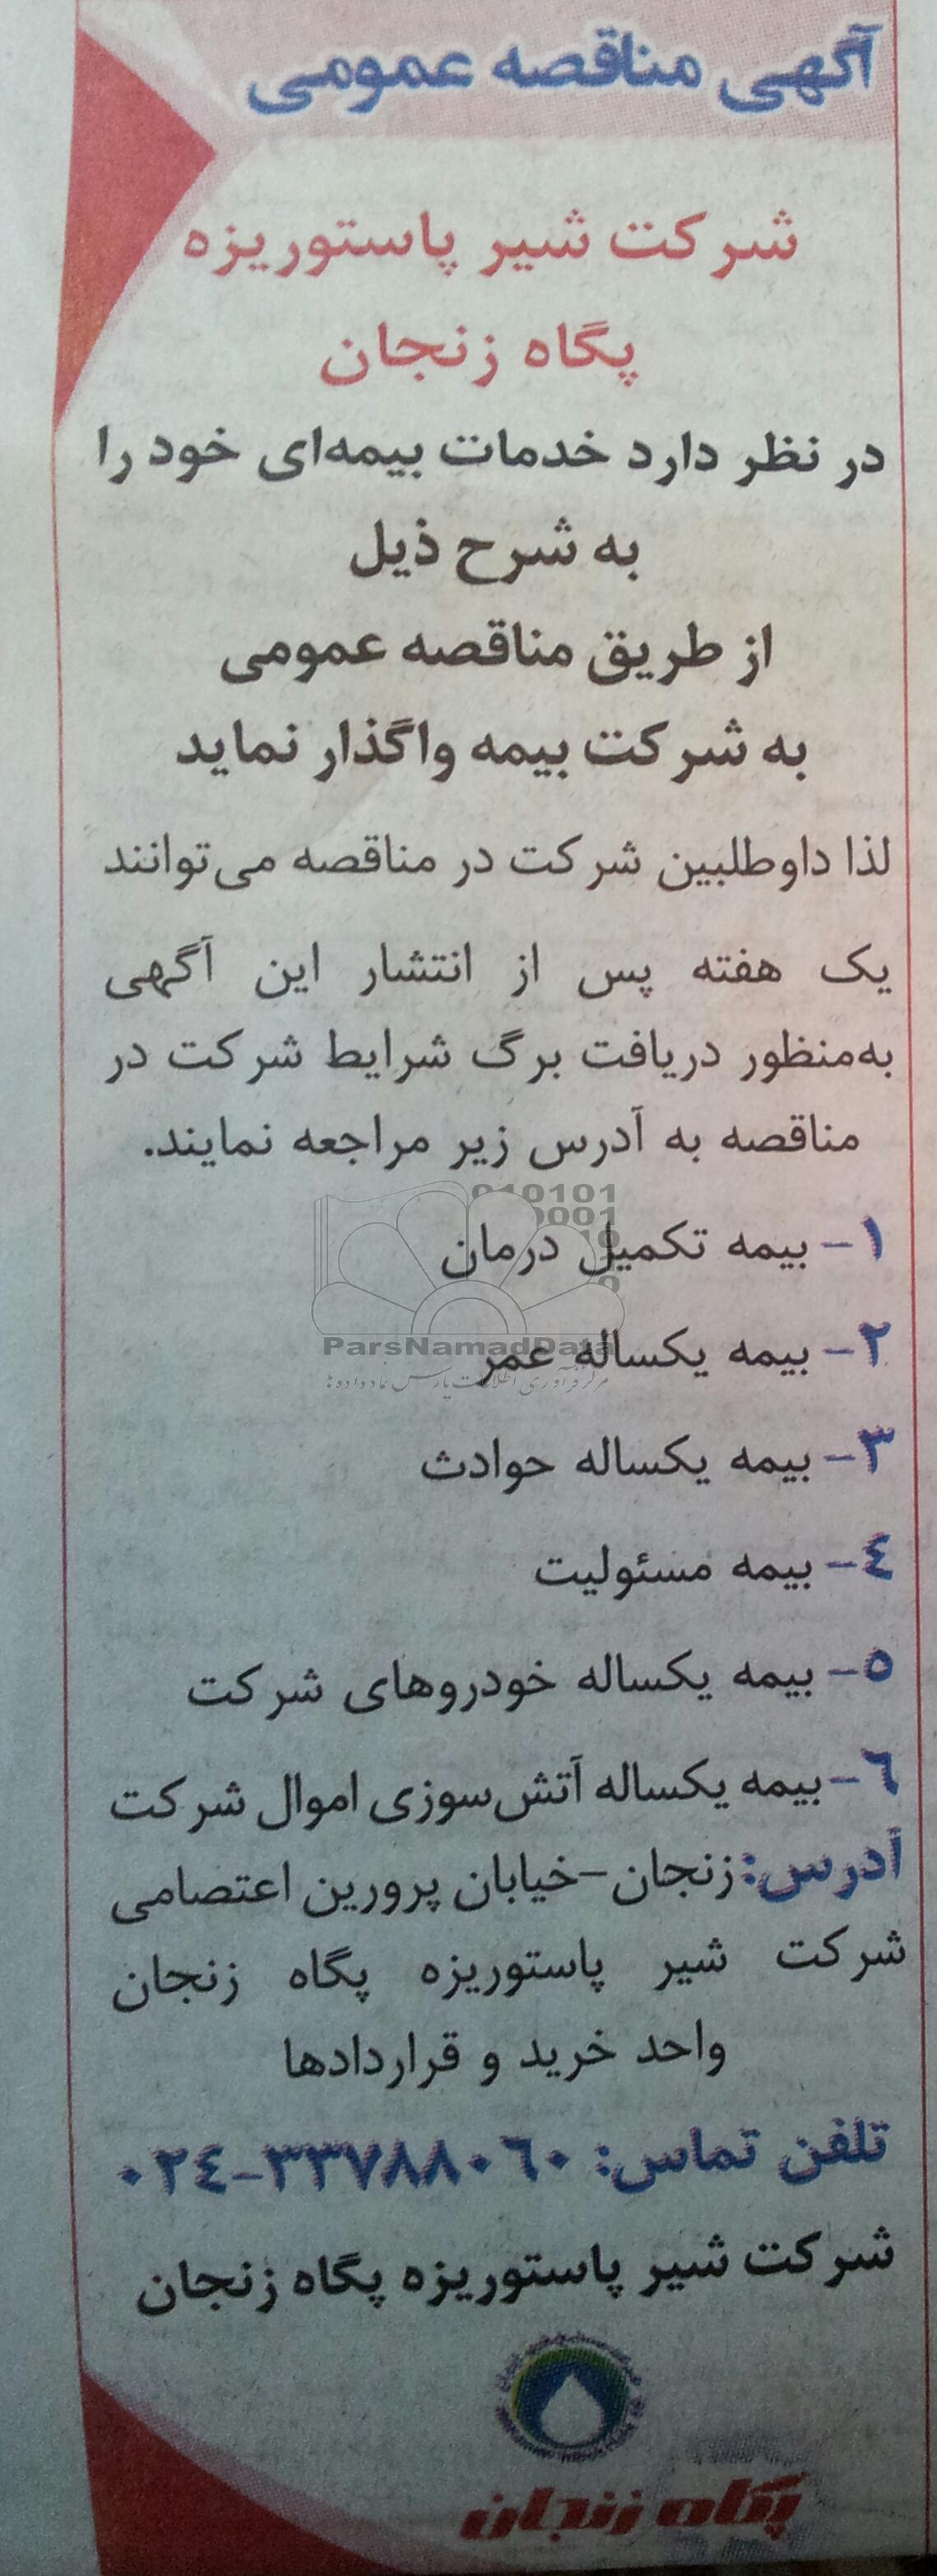 آگهی مناقصه عمومی
شرکت شیر پاستوریزه
پگاه زنجان
در نظر دارد خدمات بیمه‌ای خود را
به شرح ذیل
از طریق مناقصه عمومی
به شرکت بیمه واگذار نماید
لذا داوطلبین شرکت در مناقصه می‌توانند
یک هفته پس از انتشار این آگهی
به‌منظور دریافت برگ شرایط شرکت در
مناقصه به آدرس زیر مراجعه نمایند.
۱- بیمه تکمیل درمان
ParsNamadData
۲- بیمه یکساله عمر
مرکز فرآوری اطلاعات پارس نماد داده ها
۳- بیمه یکساله حوادث
٤- بیمه مسئولیت
٥- بیمه یکساله خودروهای شرکت
٦- بیمه یکساله آتش‌سوزی اموال شرکت
آدرس: زنجان-خیابان پرورین اعتصامی
شرکت شیر پاستوریزه پگاه زنجان
واحد خرید و قراردادها
تلفن تماس: ۰۲٤-۳۳۷۸۸۰٦۰
شرکت شیر پاستوریزه پگاه زنجان
پگاه زنجان